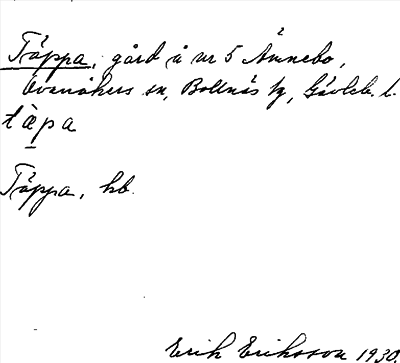 Täppa, gård å nr 5 Ämnebo,
Ovanåkers sn, Bollnäs tg, Gävleb. l.
tæ̀pa
Täppa, hb.
Erik Eriksson 1930.